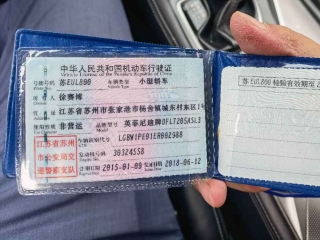 中华人民共和国机动车行驶证
Vehicle License of the People's Republic of China
号牌号码 苏EUL800 车辆类型 小型轿车
所有人 徐赛博
住址 江苏省苏州市张家港市杨舍镇城东村东区1
使用性质 非营运 品牌型号 英菲尼迪牌DFL7205ASL3
江苏省苏州市公安局交通警察支队
车辆识别代号 LGBW1PE01ER002988
发动机号码 30324558
注册日期 2015-01-09 发证日期 2018-06-12
苏EUL800 检验有效期至2